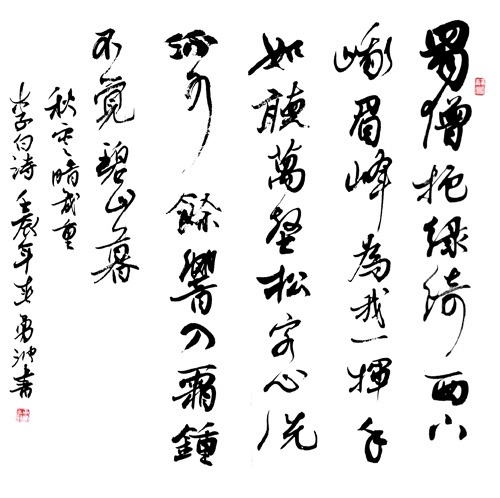 蜀僧抱綠綺西下
峨眉峰為我一揮手
如聽萬壑松客心洗
流水餘響入霜鍾
不覺碧山暮
秋雲暗幾重
李白詩壬辰年春勇書